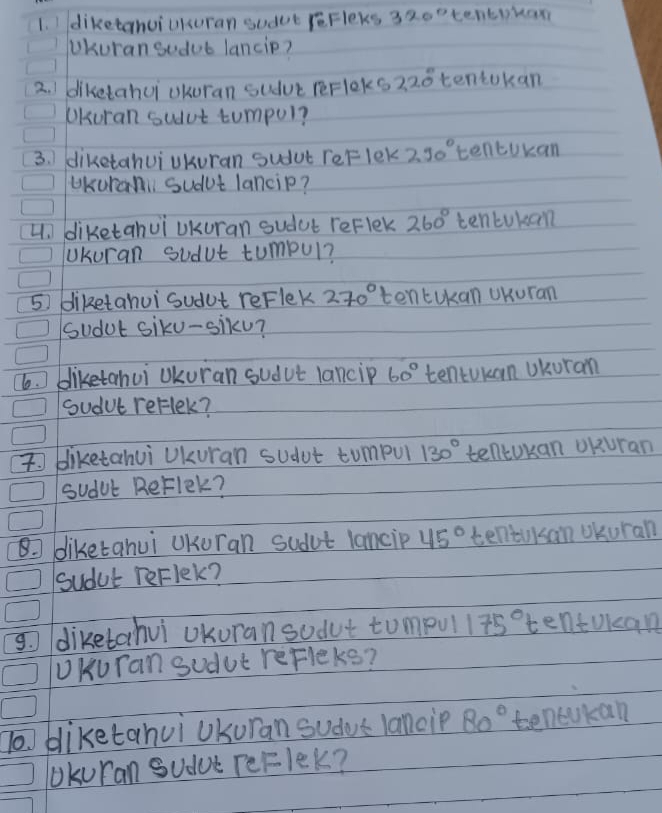 1. diketahui ukuran sudut refleks 320° tentukan
ukuran sudut lancip?
2. diketahui ukuran sudut refleks 220° tentukan
Ukuran sudut tumpul?
3. diketahui ukuran sudut reflek 290° tentukan
ukuran sudut lancip?
4. diketahui ukuran sudut reflek 260° tentukan
Ukuran sudut tumpul?
5 diketahui sudut reflek 270° tentukan ukuran
sudut siku-siku?
6. diketahui ukuran sudut lancip 60° tentukan ukuran
sudut reflek?
7. diketahui ukuran sudut tumpul 130° tentukan ukuran
sudut Reflek?
8. diketahui ukuran sudut lancip 45° tentukan ukuran
sudut reflek?
9. diketahui ukuran sudut tumpul 175° tentukan
Ukuran sudut refleks?
10. diketahui ukuran sudut lancip 80° tentukan
ukuran sudut reflek?